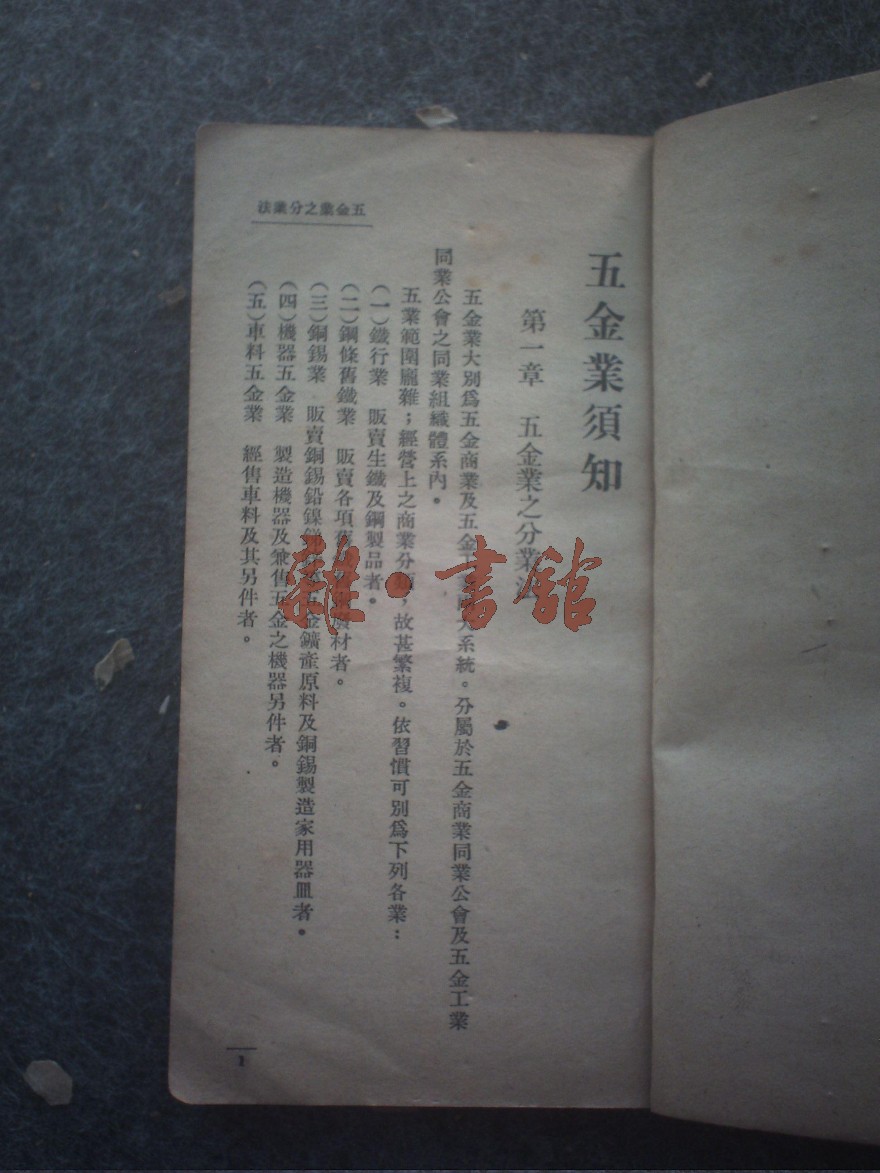 五金業之分業法
五金業須知
第一章 五金業之分業
五金業大別爲五金商業及五金 系統。分屬於五金商業同業公會及五金工業
同業公會之同業組織體系內。
五業範圍龐雜；經營上之商業分 ，故甚繁複。依習慣可別爲下列各業：
（一）鐵行業 販賣生鐵及鋼製品者。
（二）鋼條舊鐵業 販賣各項舊 廢材者。
（三）銅錫業 販賣銅錫鉛鎳 五金鑛產原料及銅錫製造家用器皿者。
（四）機器五金業 製造機器及兼售五金之機器另件者。
（五）車料五金業 經售車料及其另件者。
1
雜·書館